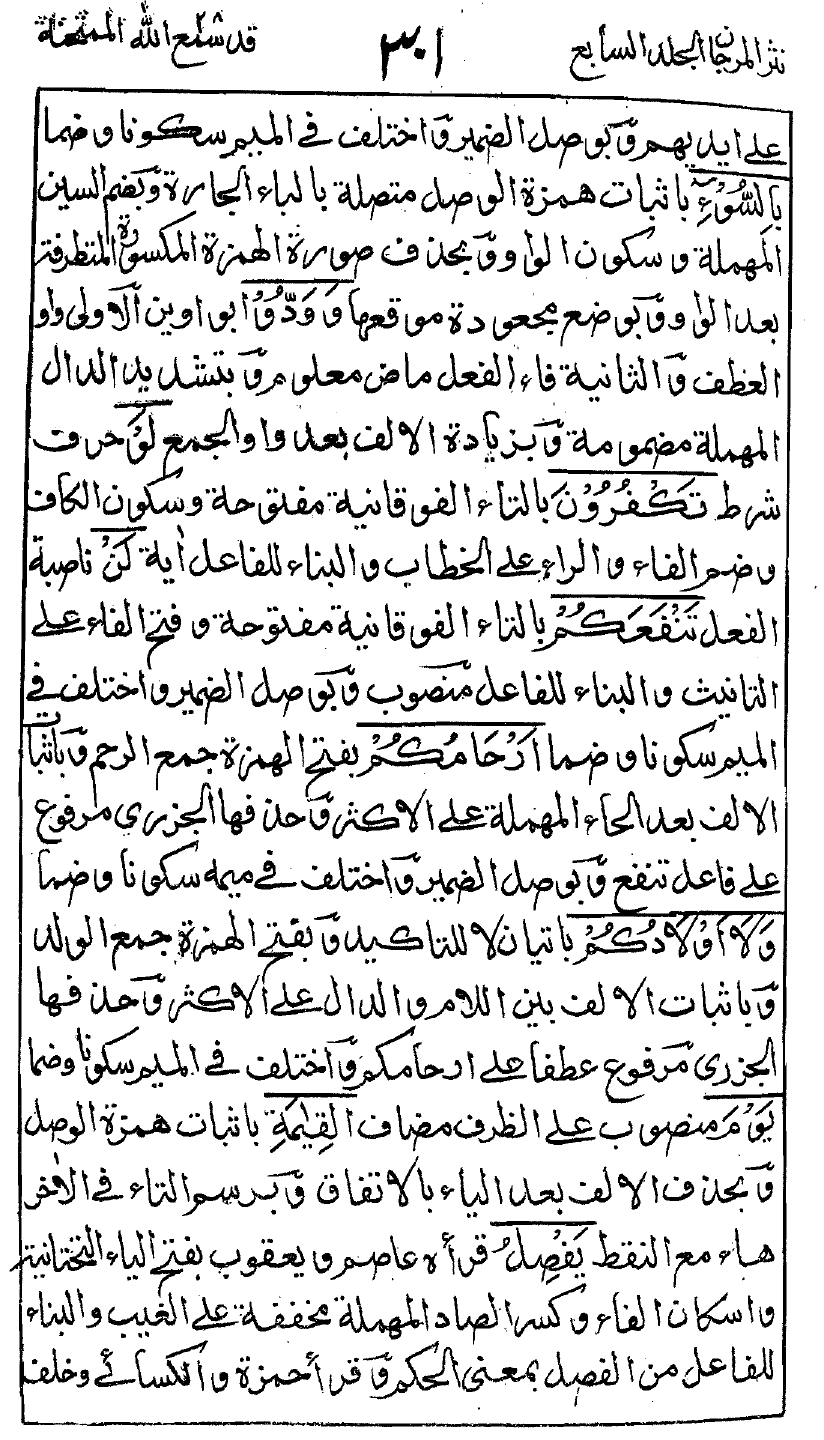 نثر المرجان المجلد السابع
٣٠١
قد سمع الله الممتحنة
على ايديهم وبوصل الضمير واختلف في الميم سكونا وضما
بِالسُّوْءِ باثبات همزة الوصل متصلة بالباء الجارة وبضم السين
المهملة وسكون الواو وبحذف صورة الهمزة المكسورة المتطرفة
بعد الواو وبوضع مجعودة موقعها وَوَدُّوْا بواوين الاولى واو
العطف والثانية فاء الفعل ماض معلوم وبتشديد الدال
المهملة مضمومة وبزيادة الالف بعد واو الجمع لَوْ حرف
شرط تَكْفُرُوْنَ بالتاء الفوقانية مفتوحة وسكون الكاف
وضم الفاء والراء على الخطاب والبناء للفاعل اٰية لَنْ ناصبة
الفعل تَنْفَعَكُمْ بالتاء الفوقانية مفتوحة وفتح الفاء على
التانيث والبناء للفاعل منصوب وبوصل الضمير واختلف في
الميم سكونا وضما اَرْحَامُكُمْ بفتح الهمزة جمع الرحم وباثبات
الالف بعد الحاء المهملة على الاكثر وحذفها الجزري مرفوع
على فاعل تنفع وبوصل الضمير واختلف في ميمه سكونا وضما
وَلَا اَوْلَادُكُمْ باتيان لا للتاكيد وبفتح الهمزة جمع الولد
وباثبات الالف بين اللام والدال على الاكثر وحذفها
الجزري مرفوع عطفا على ارحامكم واختلف في الميم سكونا وضما
يَوْمَ منصوب على الظرف مضاف الْقِيٰمَةِ باثبات همزة الوصل
وبحذف الالف بعد الياء بالاتفاق وبرسم التاء في الاٰخر
هاء مع النقط يَفْصِلُ قرأه عاصم ويعقوب بفتح الياء التحتانية
واسكان الفاء وكسر الصاد المهملة مخففة على الغيب والبناء
للفاعل من الفصل بمعنى الحكم وقرأ حمزة والكسائي وخلف